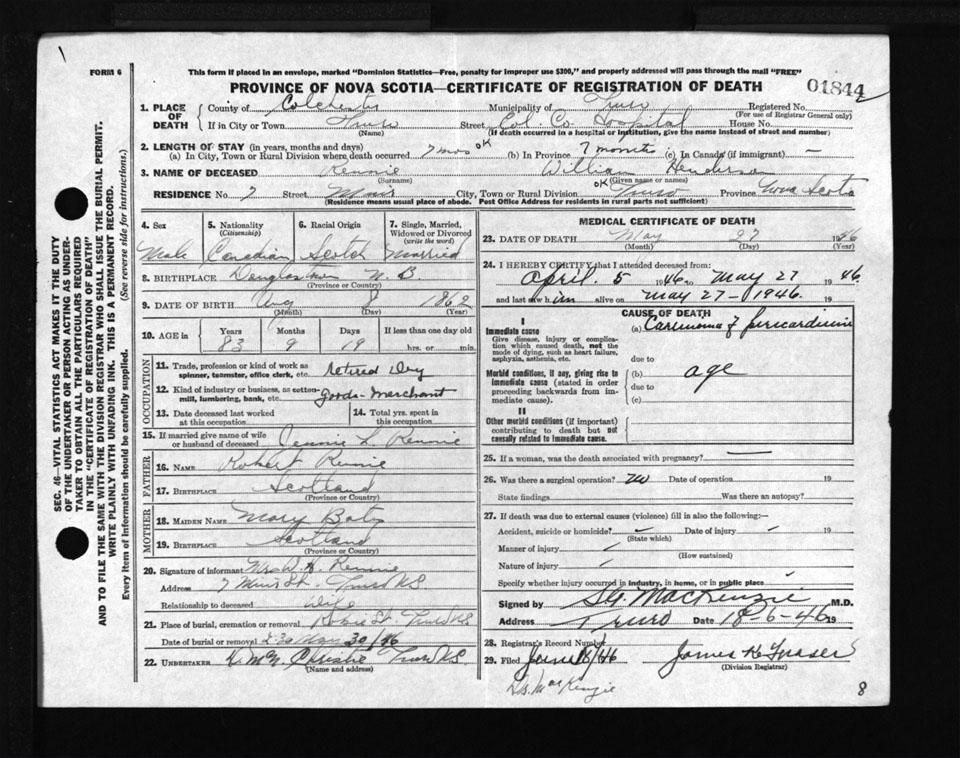 FORM 6
This form if placed in an envelope, marked "Dominion Statistics—Free, penalty for improper use $300," and properly addressed will pass through the mail "FREE"
PROVINCE OF NOVA SCOTIA—CERTIFICATE OF REGISTRATION OF DEATH
01844
1. PLACE OF DEATH
County of Colchester Municipality of Truro Registered No.
(For use of Registrar General only)
If in City or Town Truro Street Col. Co. Hospital House No.
(Name) (If death occurred in a hospital or institution, give the name instead of street and number)
2. LENGTH OF STAY (in years, months and days)
(a) In City, Town or Rural Division where death occurred 7 mos OK (b) In Province 7 months (c) In Canada (if immigrant) —
3. NAME OF DECEASED Rennie William Henderson
(Surname) (Given name or names)
RESIDENCE No. 7 Street City, Town or Rural Division OK Truro Province Nova Scotia
(Residence means usual place of abode. Post Office Address for residents in rural parts not sufficient)
4. Sex
Male
5. Nationality
(Citizenship)
Canadian
6. Racial Origin
Scotch
7. Single, Married, Widowed or Divorced
(write the word)
Married
8. BIRTHPLACE Douglastown N.B
(Province or Country)
9. DATE OF BIRTH Aug 8 1862
(Month) (Day) (Year)
10. AGE in
Years Months Days If less than one day old
83 9 19 hrs. or min.
OCCUPATION
11. Trade, profession or kind of work as spinner, teamster, office clerk, etc. retired Dry
12. Kind of industry or business, as cotton-mill, lumbering, bank, etc. goods-merchant
13. Date deceased last worked at this occupation
14. Total yrs. spent in this occupation
15. If married give name of wife or husband of deceased Jennie L. Rennie
FATHER
16. NAME Robert Rennie
17. BIRTHPLACE Scotland
(Province or Country)
MOTHER
18. MAIDEN NAME Mary
19. BIRTHPLACE Scotland
(Province or Country)
20. Signature of informant Mrs W. H. Rennie
Address 7 St. Truro N.S.
Relationship to deceased Wife
21. Place of burial, cremation or removal Robie St. Truro N.S
Date of burial or removal 2.30 May 30/46
22. UNDERTAKER Christie Truro N.S.
(Name and address)
MEDICAL CERTIFICATE OF DEATH
23. DATE OF DEATH May 27 1946
(Month) (Day) (Year)
24. I HEREBY CERTIFY that I attended deceased from:
April. 5 1946 to May 27 1946
and last saw him alive on May 27-1946 19
CAUSE OF DEATH
I
Immediate cause
Give disease, injury or complication which caused death, not the mode of dying, such as heart failure, asphyxia, asthenia, etc.
(a) Carcinoma of pericardium
due to
Morbid conditions, if any, giving rise to immediate cause (stated in order proceeding backwards from immediate cause).
(b) age
due to
(c)
II
Other morbid conditions (if important) contributing to death but not causally related to immediate cause.
25. If a woman, was the death associated with pregnancy? —
26. Was there a surgical operation? no Date of operation 19
State findings Was there an autopsy?
27. If death was due to external causes (violence) fill in also the following:—
Accident, suicide or homicide? Date of injury 19
(State which)
Manner of injury
(How sustained)
Nature of injury
Specify whether injury occurred in industry, in home, or in public place
Signed by MacKenzie M.D.
Address Truro Date 18-6-46 19
28. Registrar's Record Number
29. Filed June 18/46 James K Fraser
(Division Registrar)
MacKenzie
8
SEC. 46—VITAL STATISTICS ACT MAKES IT THE DUTY OF THE UNDERTAKER OR PERSON ACTING AS UNDERTAKER TO OBTAIN ALL THE PARTICULARS REQUIRED IN THE "CERTIFICATE OF REGISTRATION OF DEATH"
AND TO FILE THE SAME WITH THE DIVISION REGISTRAR WHO SHALL ISSUE THE BURIAL PERMIT.
WRITE PLAINLY WITH UNFADING INK. THIS IS A PERMANENT RECORD.
Every item of information should be carefully supplied. (See reverse side for instructions.)